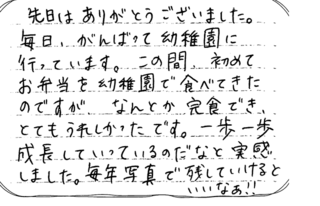 先日は ありがとうございました。
毎日、がんばって幼稚園に
行っています。この間、初めて
お弁当を幼稚園で食べてきた
のですが、なんとか完食でき、
とてもうれしかったです。一歩一歩
成長していっているのだなと実感
しました。毎年写真で残していけると
いいなぁ!!